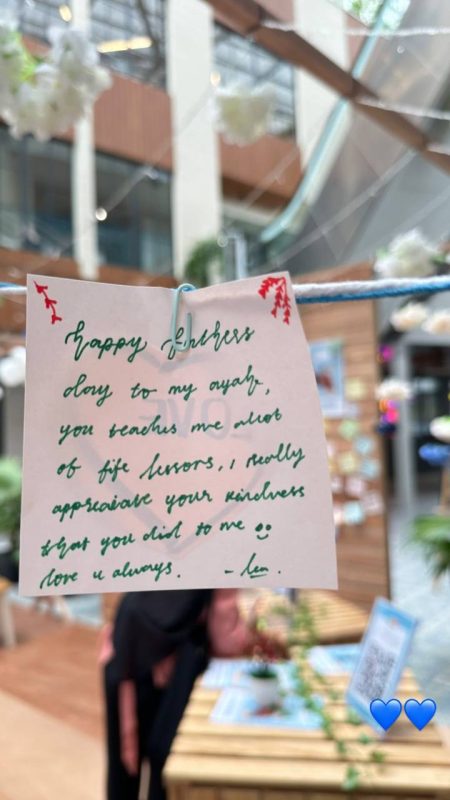 happy fathers
day to my ayah,
you teaches me alot
of fife lessors, i really
appreciate your kindness
that you did to me
love u always. -
LOVE